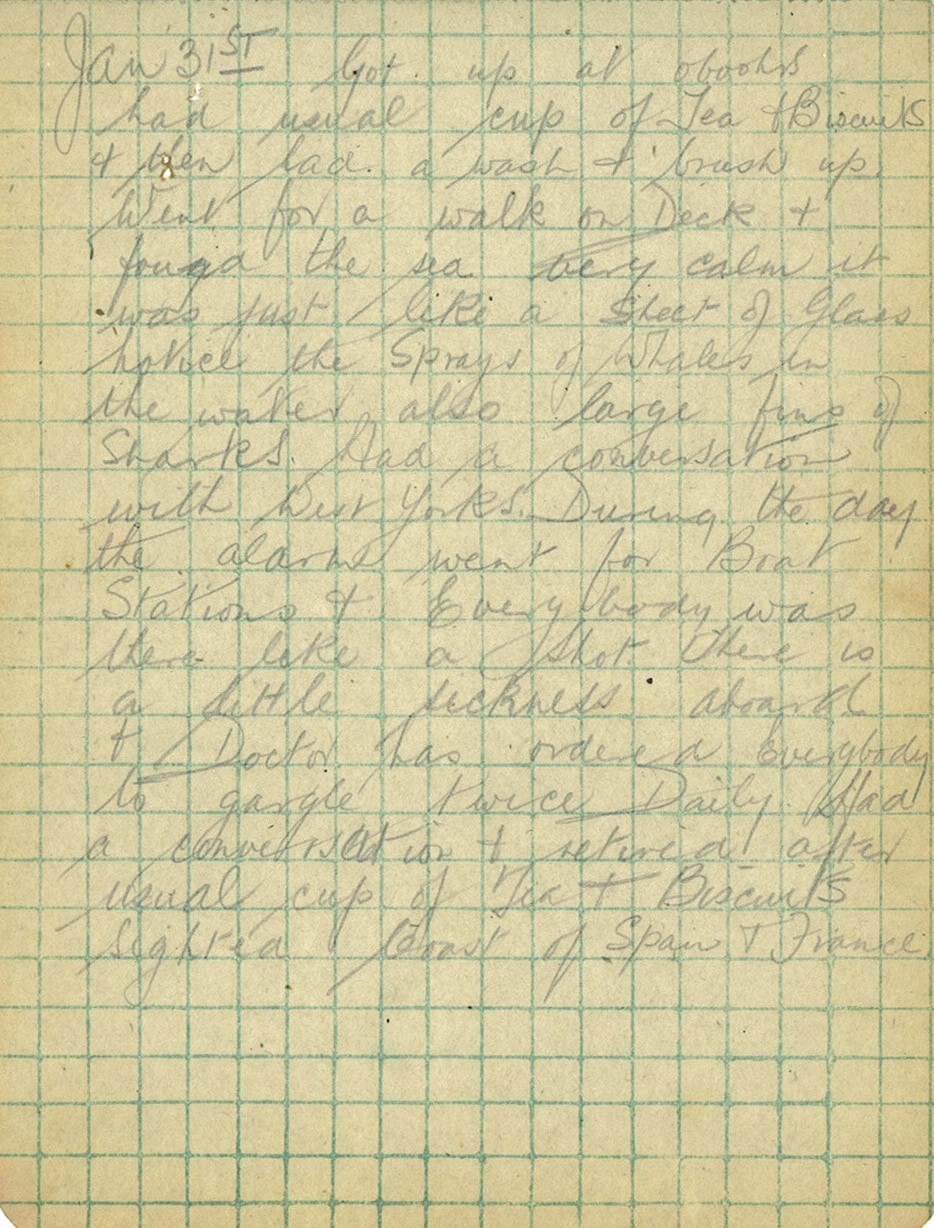 Jan 31ST Got up at 0600hrs
had usual cup of Tea + Biscuits
+ then had a wash + brush up.
Went for a walk on Deck +
found the sea very calm it
was just like a Sheet of Glass
notice the Sprays of Whales in
the water also large fins of
Sharks. Had a conversation
with West Yorks. During the day
the alarms went for Boat
Stations + Every body was
there like a shot. There is
a little sickness aboard
+ Doctor has ordered Everybody
to gargle twice Daily. Had
a conversation + retired after
usual cup of Tea + Biscuits
Sighted Coast of Spain + France